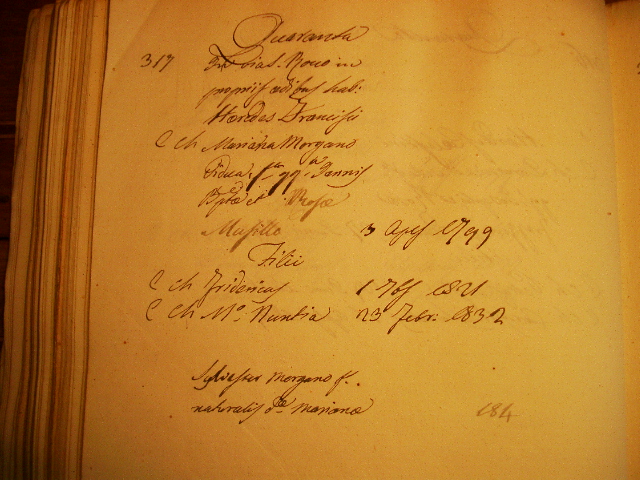 Quaranta
317 In Dias. Rouo in
propriis aedibus hab:
Haeredes Francisci
C Ch Mariana Morgano
Vidua, Joannis
Bptae et Rosae
Musillo 3 April 1799
Filii
C Ch Fridericus 1 7bs 1821
C Ch Ma. Nuntia 23 Febr: 1832
Sylvester Morgano f.
naturalis dae Marianae 184